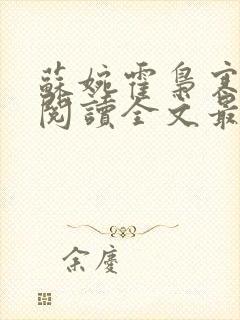 蘇婉霍梟寒
閱讀全文最
余慶